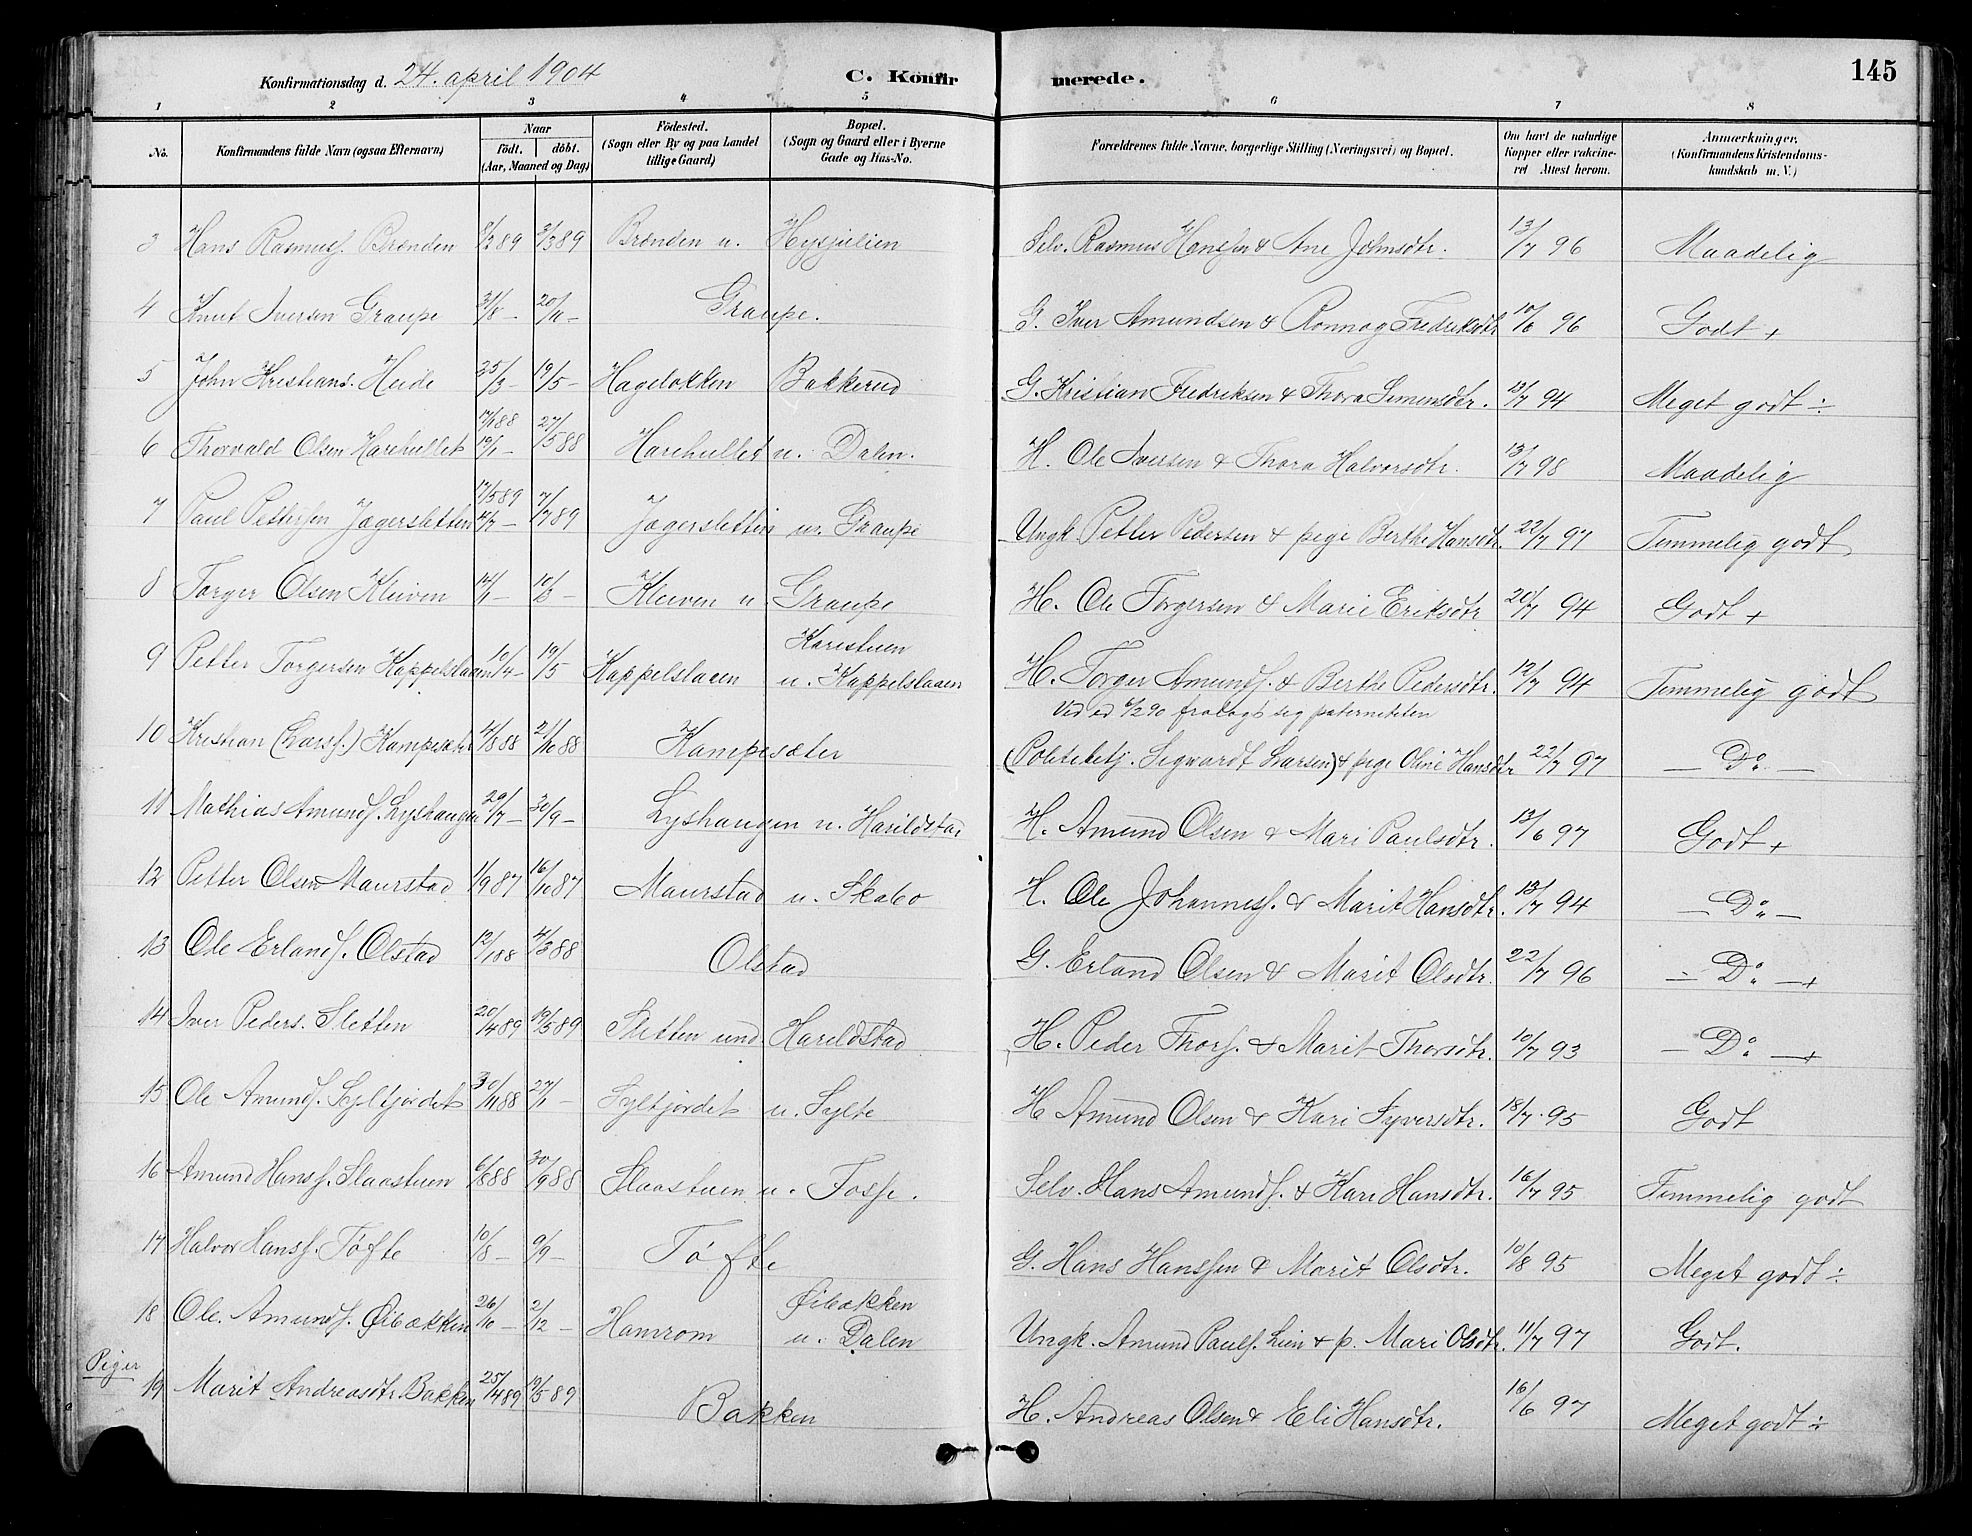 Konfirmationsdag d. 24. april 1904 C. Konfir merede. 145
1 2 3 4 5 6 7 8
No. Konfirmandens fulde Navn (ogsaa Efternavn) Naar födt. döbt. (Aar, Maaned og Dag) Födested. (Sogn eller By og paa Landet tillige Gaard) Bopæl. (Sogn og Gaard eller i Byerne Gade og Hus-No. Forældrenes fulde Navne, borgerlige Stilling (Næringsvei) og Bopæl. Om havt de naturlige Kopper eller vakcineret Attest herom. Anmærkninger. (Konfirmandens Kristendomskundskab m. V.)
3 Hans Rasmuss. Brænden 89 3/3 89 Brænden u. Hysjulien Selv. Rasmus Hanssen & Ane Johnsdtr. 13/7 96 Maadelig
4 Knut Iversen Graupe 31/8 - 20/11 - Graupe. G. Iver Amundsen & Ronnog Fredriksdtr 10/6 96 Godt +
5 John Kristians. Heide 25/3 - 19/5 - Hageløkken Bakkerud G. Kristian Fredriksen & Thora Simensdtr. 13/7 94 Meget godt ÷
6 Thorvald Olsen Harehullet 88 19/1 - 27/5 88 Harehullet u. Dalen. H. Ole Iversen & Thora Halvorsdtr. 13/7 98 Maadelig
7 Paul Pettersen Jagersletten 17/5 89 - 7/7 89 Jagersletten u. Graupe Ungk. Petter Pedersen & pige Berthe Hansdtr. 22/7 97 Temmelig godt
8 Torger Olsen Kleiven 14/1 - 10/3 - Kleiven u. Graupe H. Ole Torgersen & Marie Eriksdtr 20/7 94 Godt +
9 Petter Torgersen Kappelslaaen 10/4 - 19/5 Kappelslaaen Karistuen u. Kappelslaaen H. Torger Amunds. & Berthe Pedersdtr. 12/7 94 Temmelig godt
Ved ed 6/2 90 fralagt sig paterniteten
10 Kristian (Larss.) Kampesæter 4/8 88 21/10 88 Kampesæter (Politibetj. Sigvardt Larsen) & pige Oline Hansdtr 22/7 97 — Do. —
11 Mathias Amunds. Lyshaugen 29/7 - 30/9 - Lyshaugen u. Harildstad H. Amund Olsen & Mari Paulsdtr. 13/6 97 Godt +
12 Petter Olsen Maurstad 1/9 87 16/10 87 Maurstad u. Skabo H. Ole Johanness. & Marit Hansdtr. 13/7 94 — Do. —
13 Ole Erlands. Olstad 12/1 88 4/3 88 Olstad G. Erland Olsen & Marit Olsdtr. 22/7 96 — Do. — +
14 Iver Peders. Sletten 20/4 89 19/5 89 Sletten und. Harildstad H. Peder Thors. & Marit Thorsdtr. 10/7 93 — Do. — +
15 Ole Amunds. Syltjordet 30/11 88 27/1 - Syltjordet u. Sylte H. Amund Olsen & Kari Syversdtr. 18/7 95 Godt
16 Amund Hanss. Slaastuen 6/8 88 30/9 88 Slaastuen u. Fosse. Selv. Hans Amunds. & Kari Hansdtr. 16/7 95 Temmelig godt
17 Halvor Hanss. Tofte 10/8 - 9/9 - Tofte G. Hans Hanssen & Marit Olsdtr. 10/8 95 Meget godt ÷
18 Ole. Amunds. Øibakken 26/10 - 2/12 - Hamrom Øibakken u. Dalen Ungk. Amund Pauls. Lien & p. Mari Olsdtr. 11/7 97 Godt.
Piger
19 Marit Andreasdtr. Bakken 25/4 89 19/5 89 Bakken H. Andreas Olsen & Eli Hansdtr. 16/6 97 Meget godt ÷